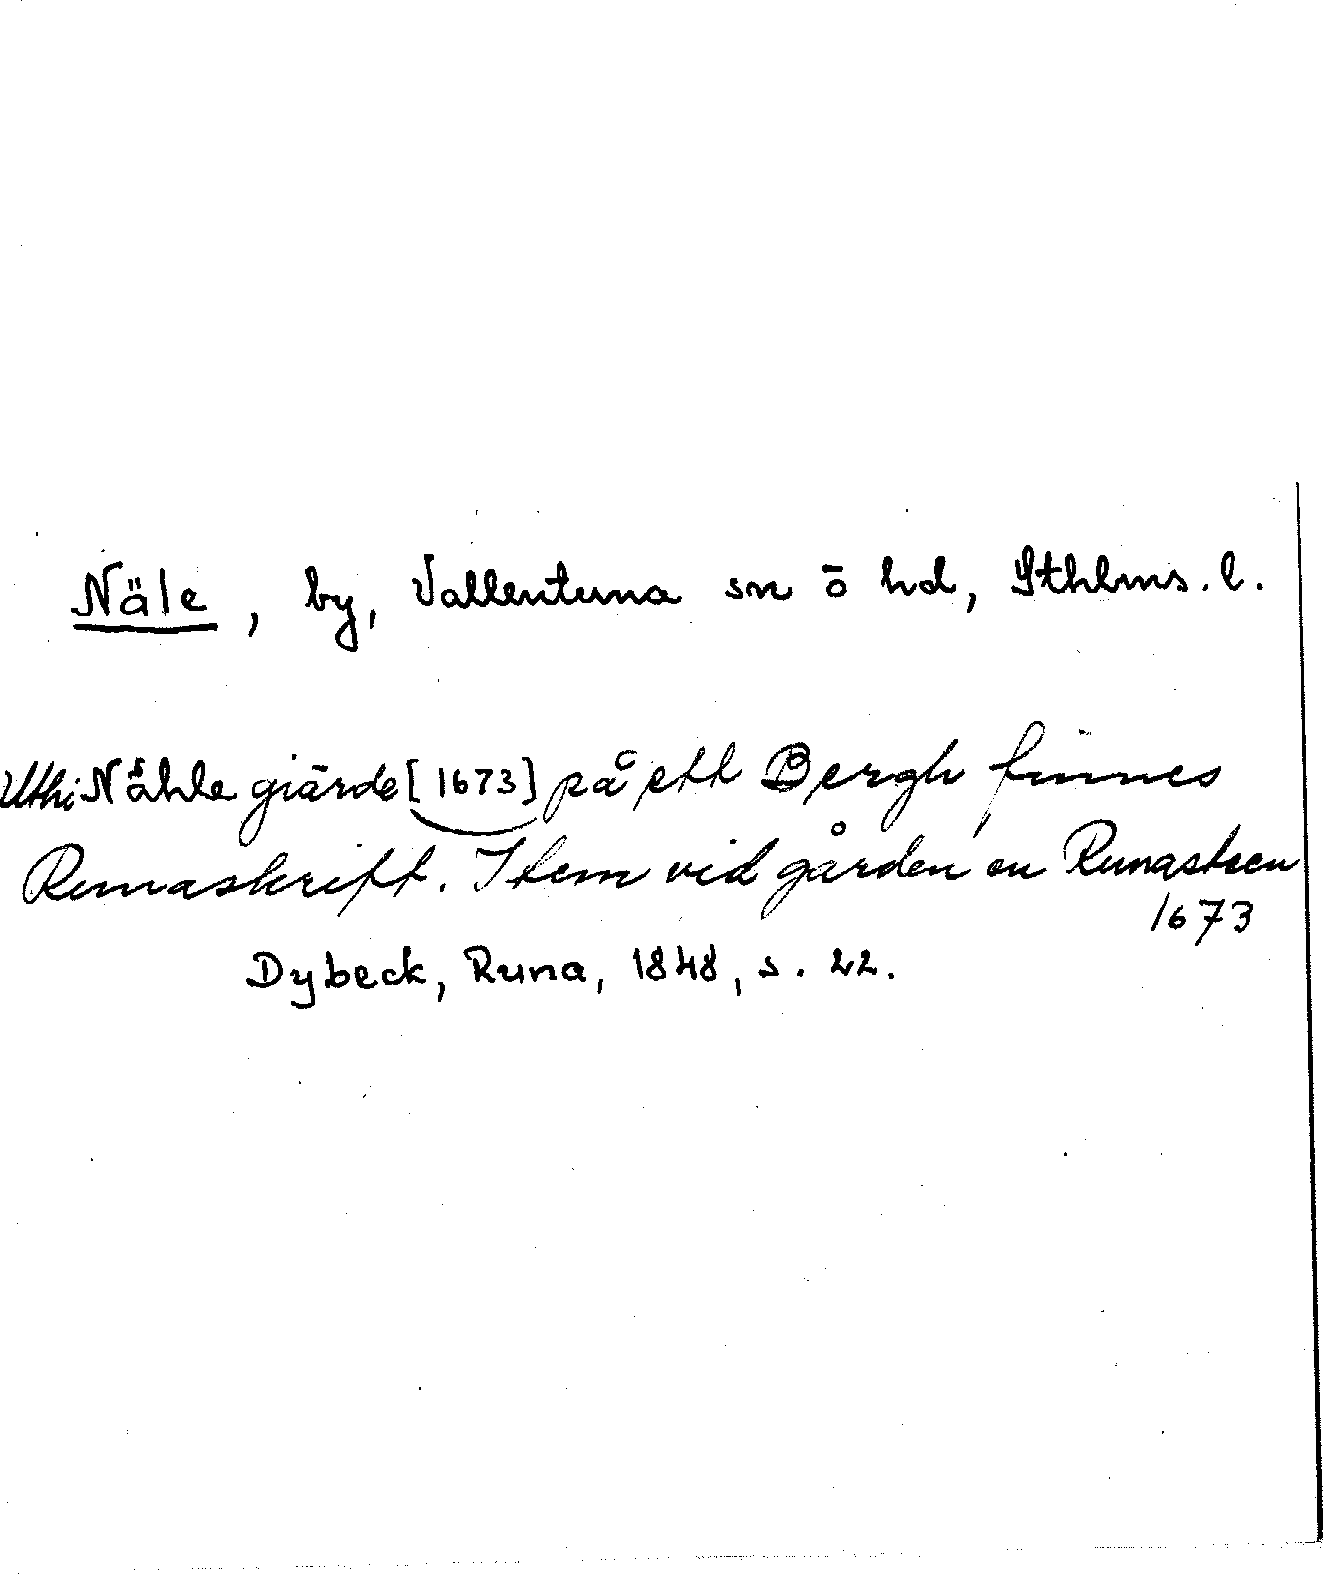 Näle, by, Vallentuna sn ō hd, Sthlms. l.
Uthi Nåhle giärde [1673] på ett Bergh finnes
Runaskrift. Item vid gården en Runasteen
1673
Dybeck, Runa, 1848, s. 22.